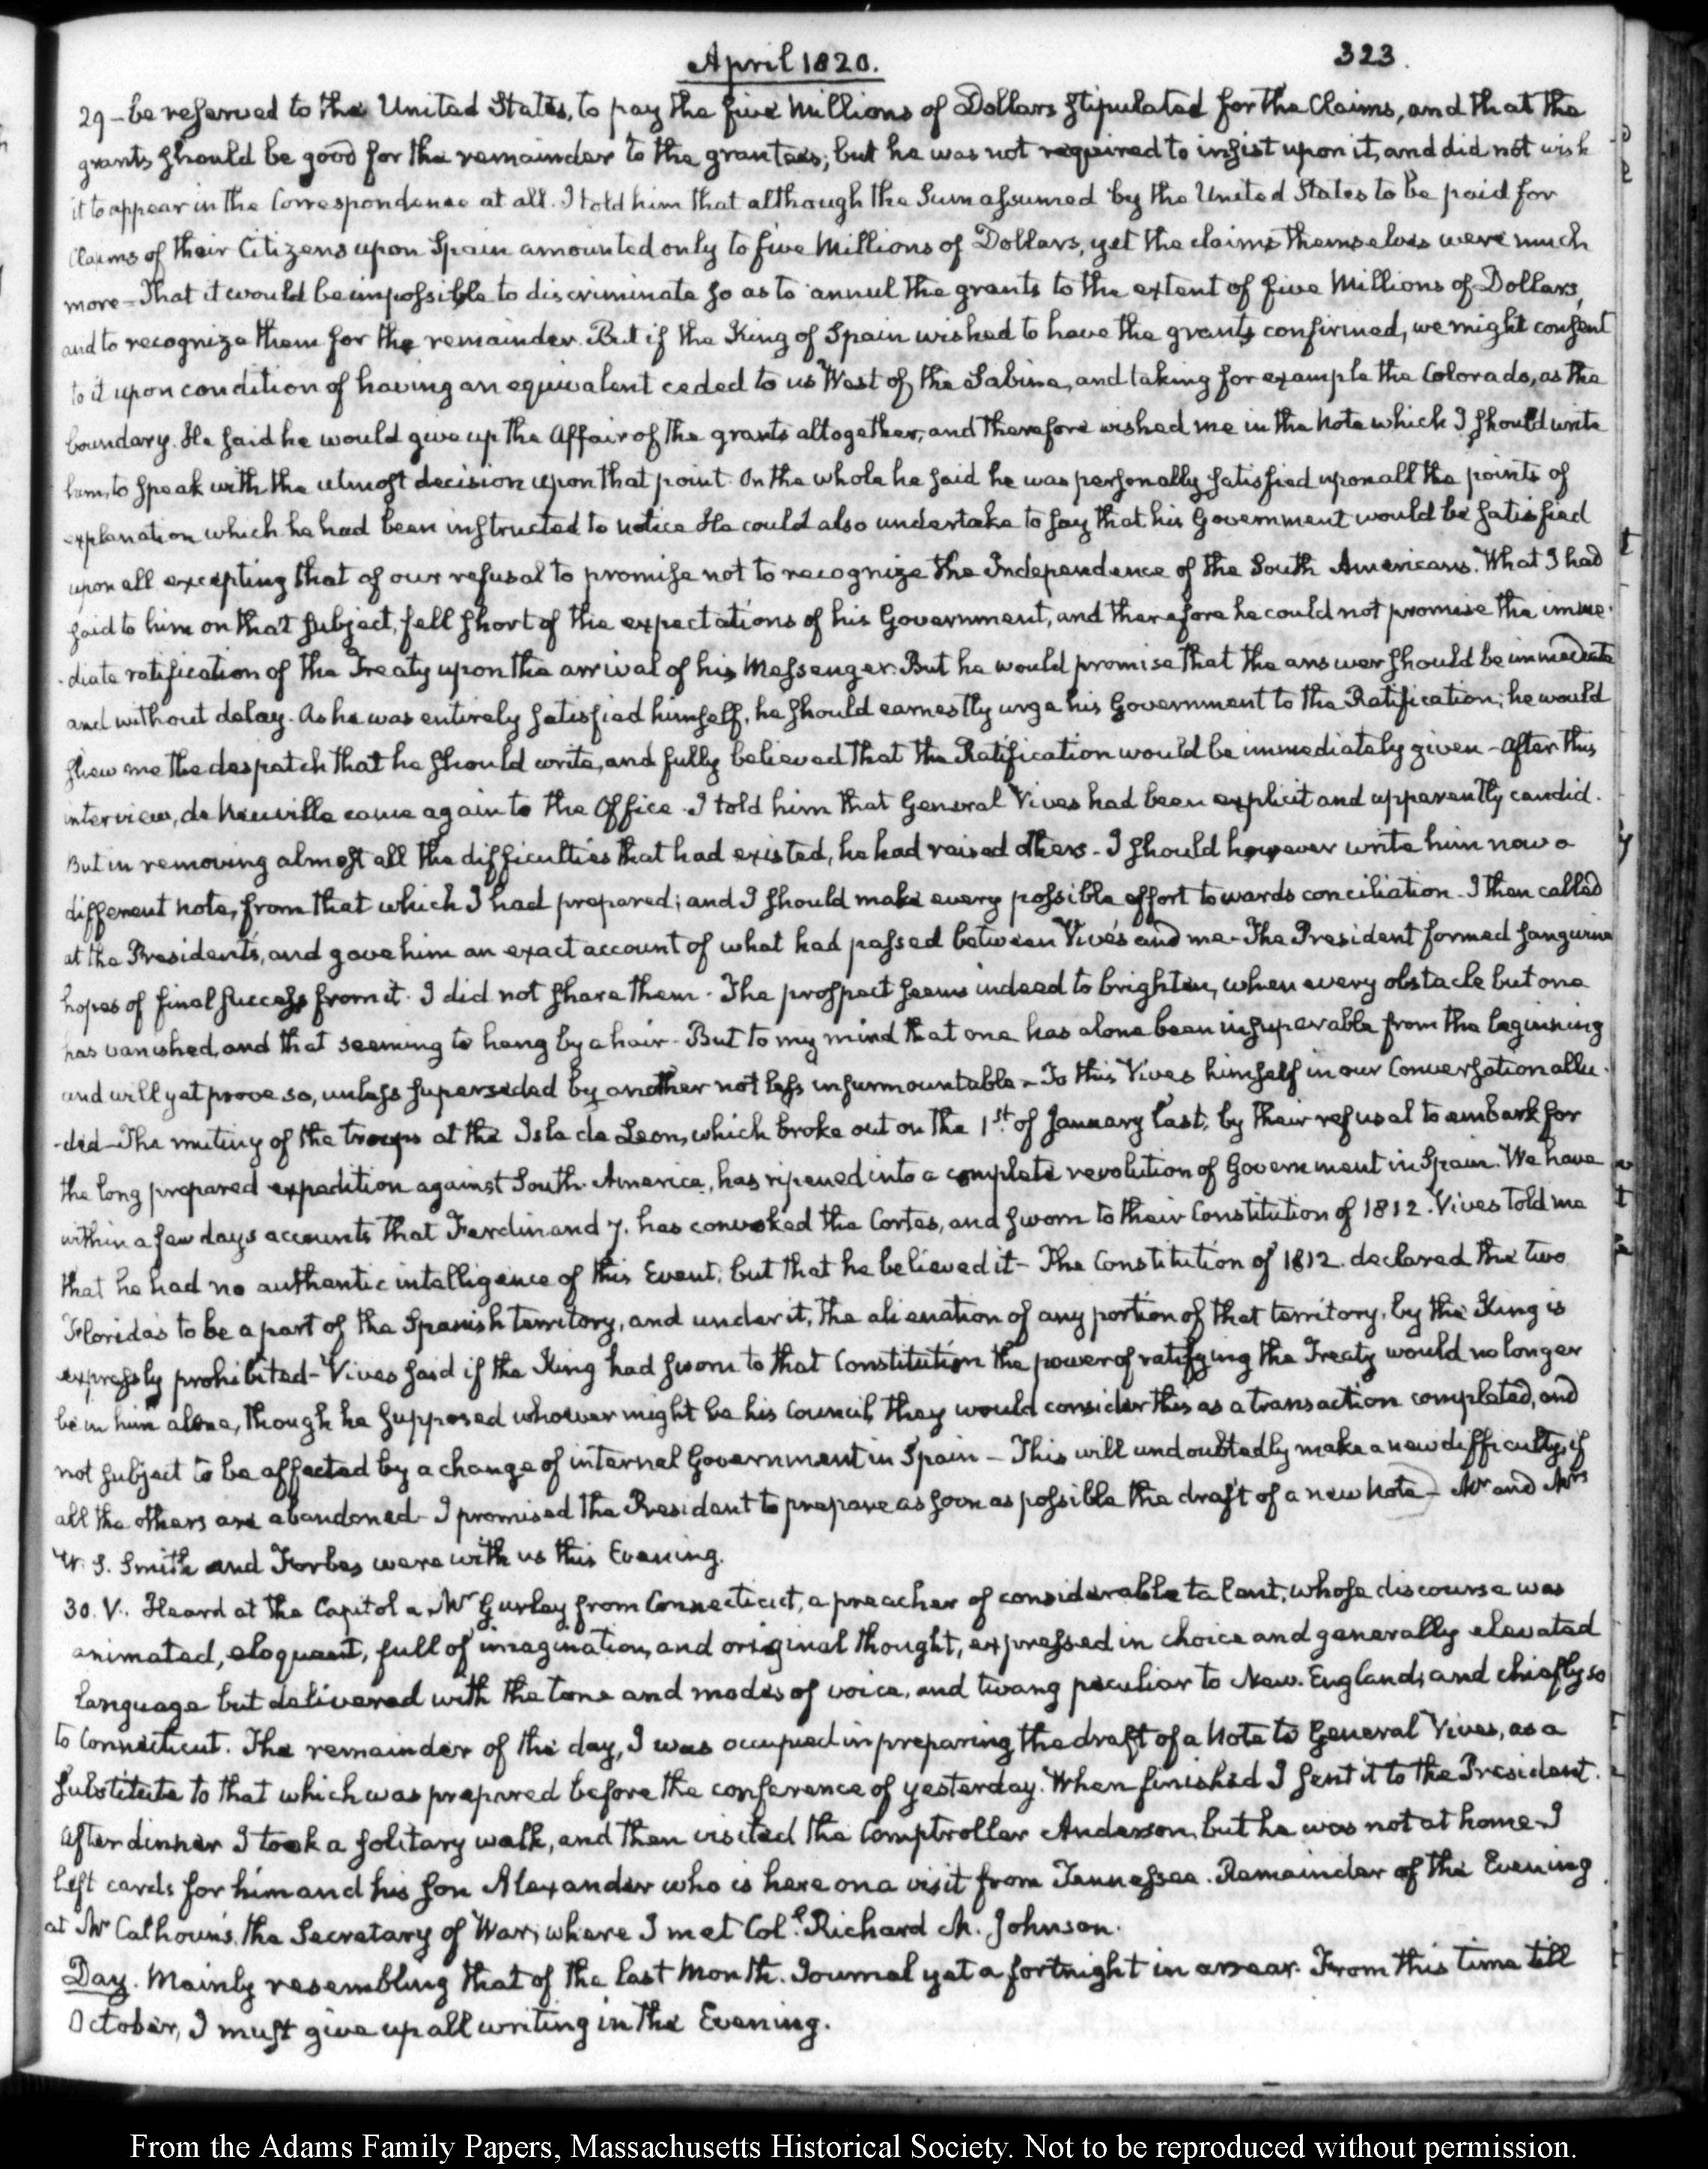 April 1820.
323.
29 - be reserved to the United States, to pay the five Millions of Dollars stipulated for the Claims, and that the
grants should be good for the remainder to the grantees; but he was not required to insist upon it, and did not wish
it to appear in the Correspondence at all. I told him that although the Sum assumed by the United States to be paid for
Claims of their Citizens upon Spain amounted only to five Millions of Dollars, yet the claims themselves were much
more - That it would be impossible to discriminate so as to annul the grants to the extent of five Millions of Dollars,
and to recognize them for the remainder. But if the King of Spain wished to have the grants confirmed, we might consent
to it upon condition of having an equivalent ceded to us West of the Sabine, and taking for example the Colorado, as the
boundary. He said he would give up the Affair of the grants altogether, and therefore wished me in the Note which I should write
him, to speak with the utmost decision upon that point. On the whole he said he was personally satisfied upon all the points of
explanation which he had been instructed to notice. He could also undertake to say that his Government would be satisfied
upon all excepting that of our refusal to promise not to recognize the Independence of the South Americans. What I had
said to him on that subject, fell short of the expectations of his Government, and therefore he could not promise the imme-
-diate ratification of the Treaty upon the arrival of his Messenger. But he would promise that the answer should be immediate
and without delay. As he was entirely satisfied himself, he should earnestly urge his Government to the Ratification; he would
shew me the despatch that he should write, and fully believed that the Ratification would be immediately given - After this
interview, de Neuville came again to the Office. I told him that General Vives had been explicit and apparently candid.
But in removing almost all the difficulties that had existed, he had raised others - I should however write him now a
different note, from that which I had prepared; and I should make every possible effort towards conciliation - I then called
at the President's, and gave him an exact account of what had passed between Vives and me - The President formed sanguine
hopes of final success from it. I did not share them. The prospect seems indeed to brighten, when every obstacle but one
has vanished, and that seeming to hang by a hair - But to my mind that one has alone been insuperable from the beginning
and will yet prove so, unless superseded by another not less insurmountable - To this Vives himself in our Conversation allu-
-ded - The mutiny of the troops at the Isla de Leon, which broke out on the 1st. of January last, by their refusal to embark for
the long prepared expedition against South-America, has ripened into a complete revolution of Government in Spain. We have
within a few days accounts that Ferdinand 7. has convoked the Cortes, and sworn to their Constitution of 1812. Vives told me
that he had no authentic intelligence of this Event, but that he believed it - The Constitution of 1812. declared the two
Floridas to be a part of the Spanish territory, and under it, the alienation of any portion of that territory, by the King is
expressly prohibited - Vives said if the King had sworn to that Constitution the power of ratifying the Treaty would no longer
be in him alone, though he supposed whoever might be his Council, they would consider this as a transaction completed, and
not subject to be affected by a change of internal Government in Spain - This will undoubtedly make a new difficulty, if
all the others are abandoned - I promised the President to prepare as soon as possible the draft of a new Note - Mr and Mrs
W. S. Smith and Forbes were with us this Evening.
30. V. Heard at the Capitol a Mr Gurley from Connecticut, a preacher of considerable talent, whose discourse was
animated, eloquent, full of imagination, and original thought, expressed in choice and generally elevated
language but delivered with the tone and modes of voice, and twang peculiar to New-England; and chiefly so
to Connecticut. The remainder of the day, I was occupied in preparing the draft of a Note to General Vives, as a
substitute to that which was prepared before the conference of yesterday. When finished I sent it to the President.
After dinner I took a solitary walk, and then visited the Comptroller Anderson, but he was not at home - I
left cards for him and his son Alexander who is here on a visit from Tennessee. Remainder of the Evening
at Mr Calhoun's the Secretary of War, where I met Coll. Richard M. Johnson.
Day. Mainly resembling that of the last Month. Journal yet a fortnight in arrear. From this time till
October, I must give up all writing in the Evening.
From the Adams Family Papers, Massachusetts Historical Society. Not to be reproduced without permission.